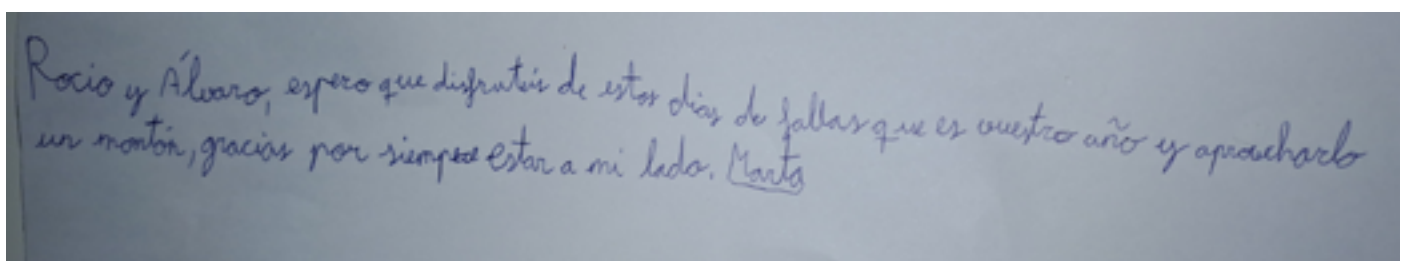 Rocio y Álvaro, espero que disfrutéis de estos dias de fallas que es vuestro año y aprovecharlo
un montón, gracias por siempre estar a mi lado. Marta